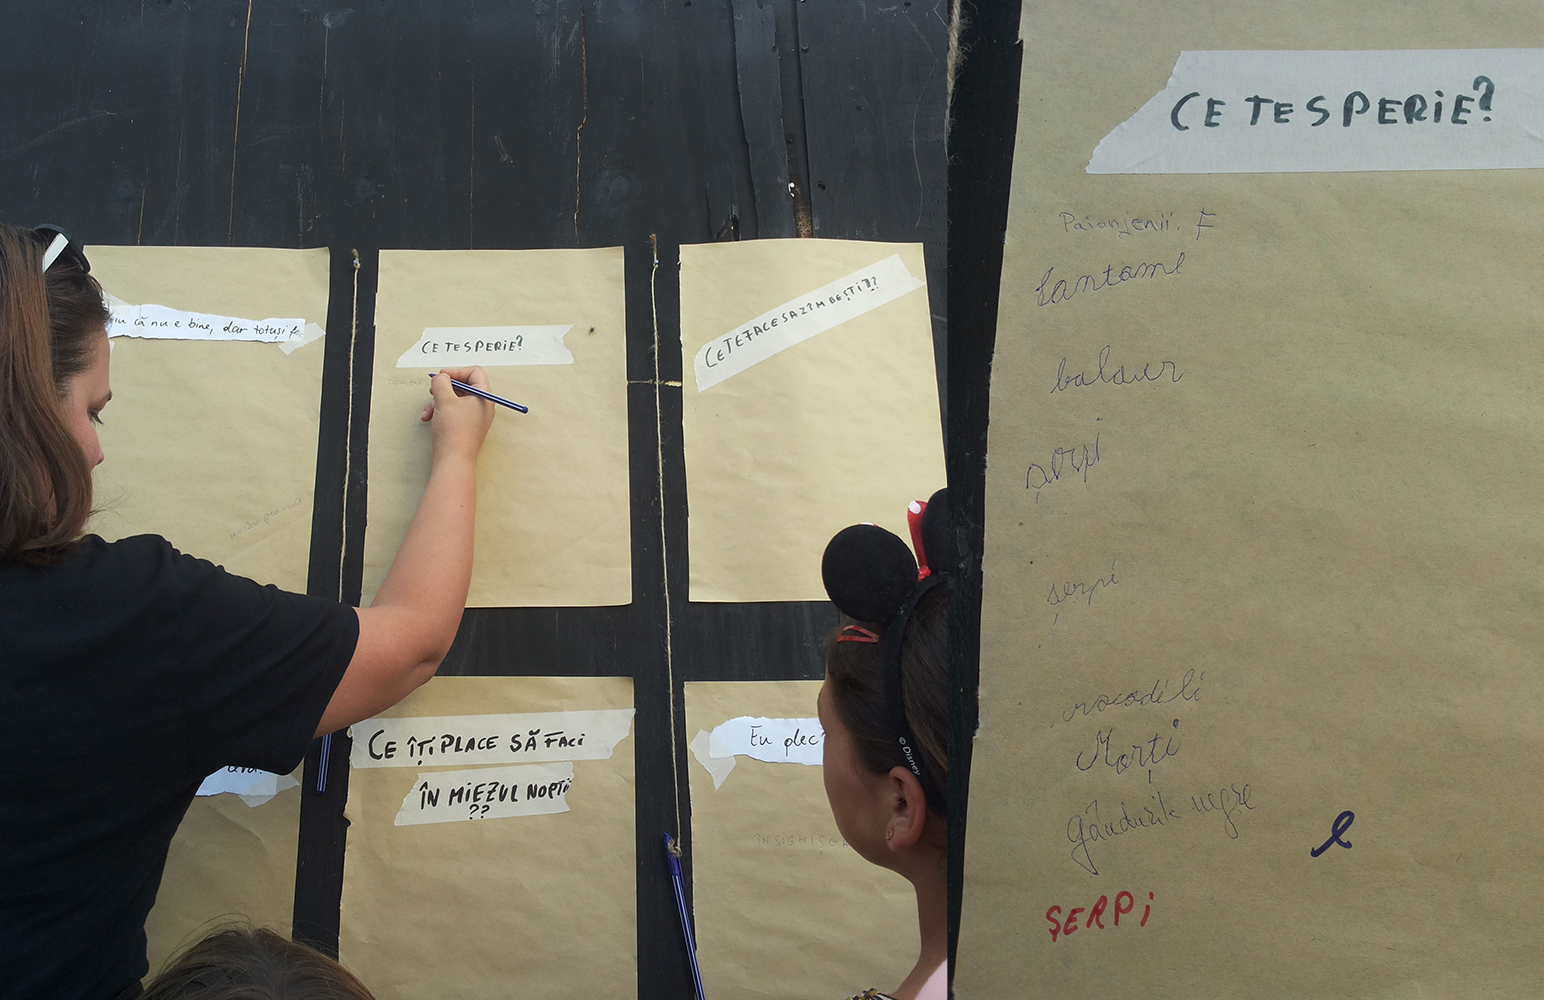 că nu e bine, dar totuși
CE TE SPERIE?
CE TE FACE SA ZÎMBEȘTI??
CE ÎȚI PLACE SĂ FACI
ÎN MIEZUL NOPȚII
??
Eu plec
© Disney
CE TE SPERIE?
Paianjenii. F
fantome
balaur
șerpi
șerpi
Morți
Gândurile negre
ȘERPI